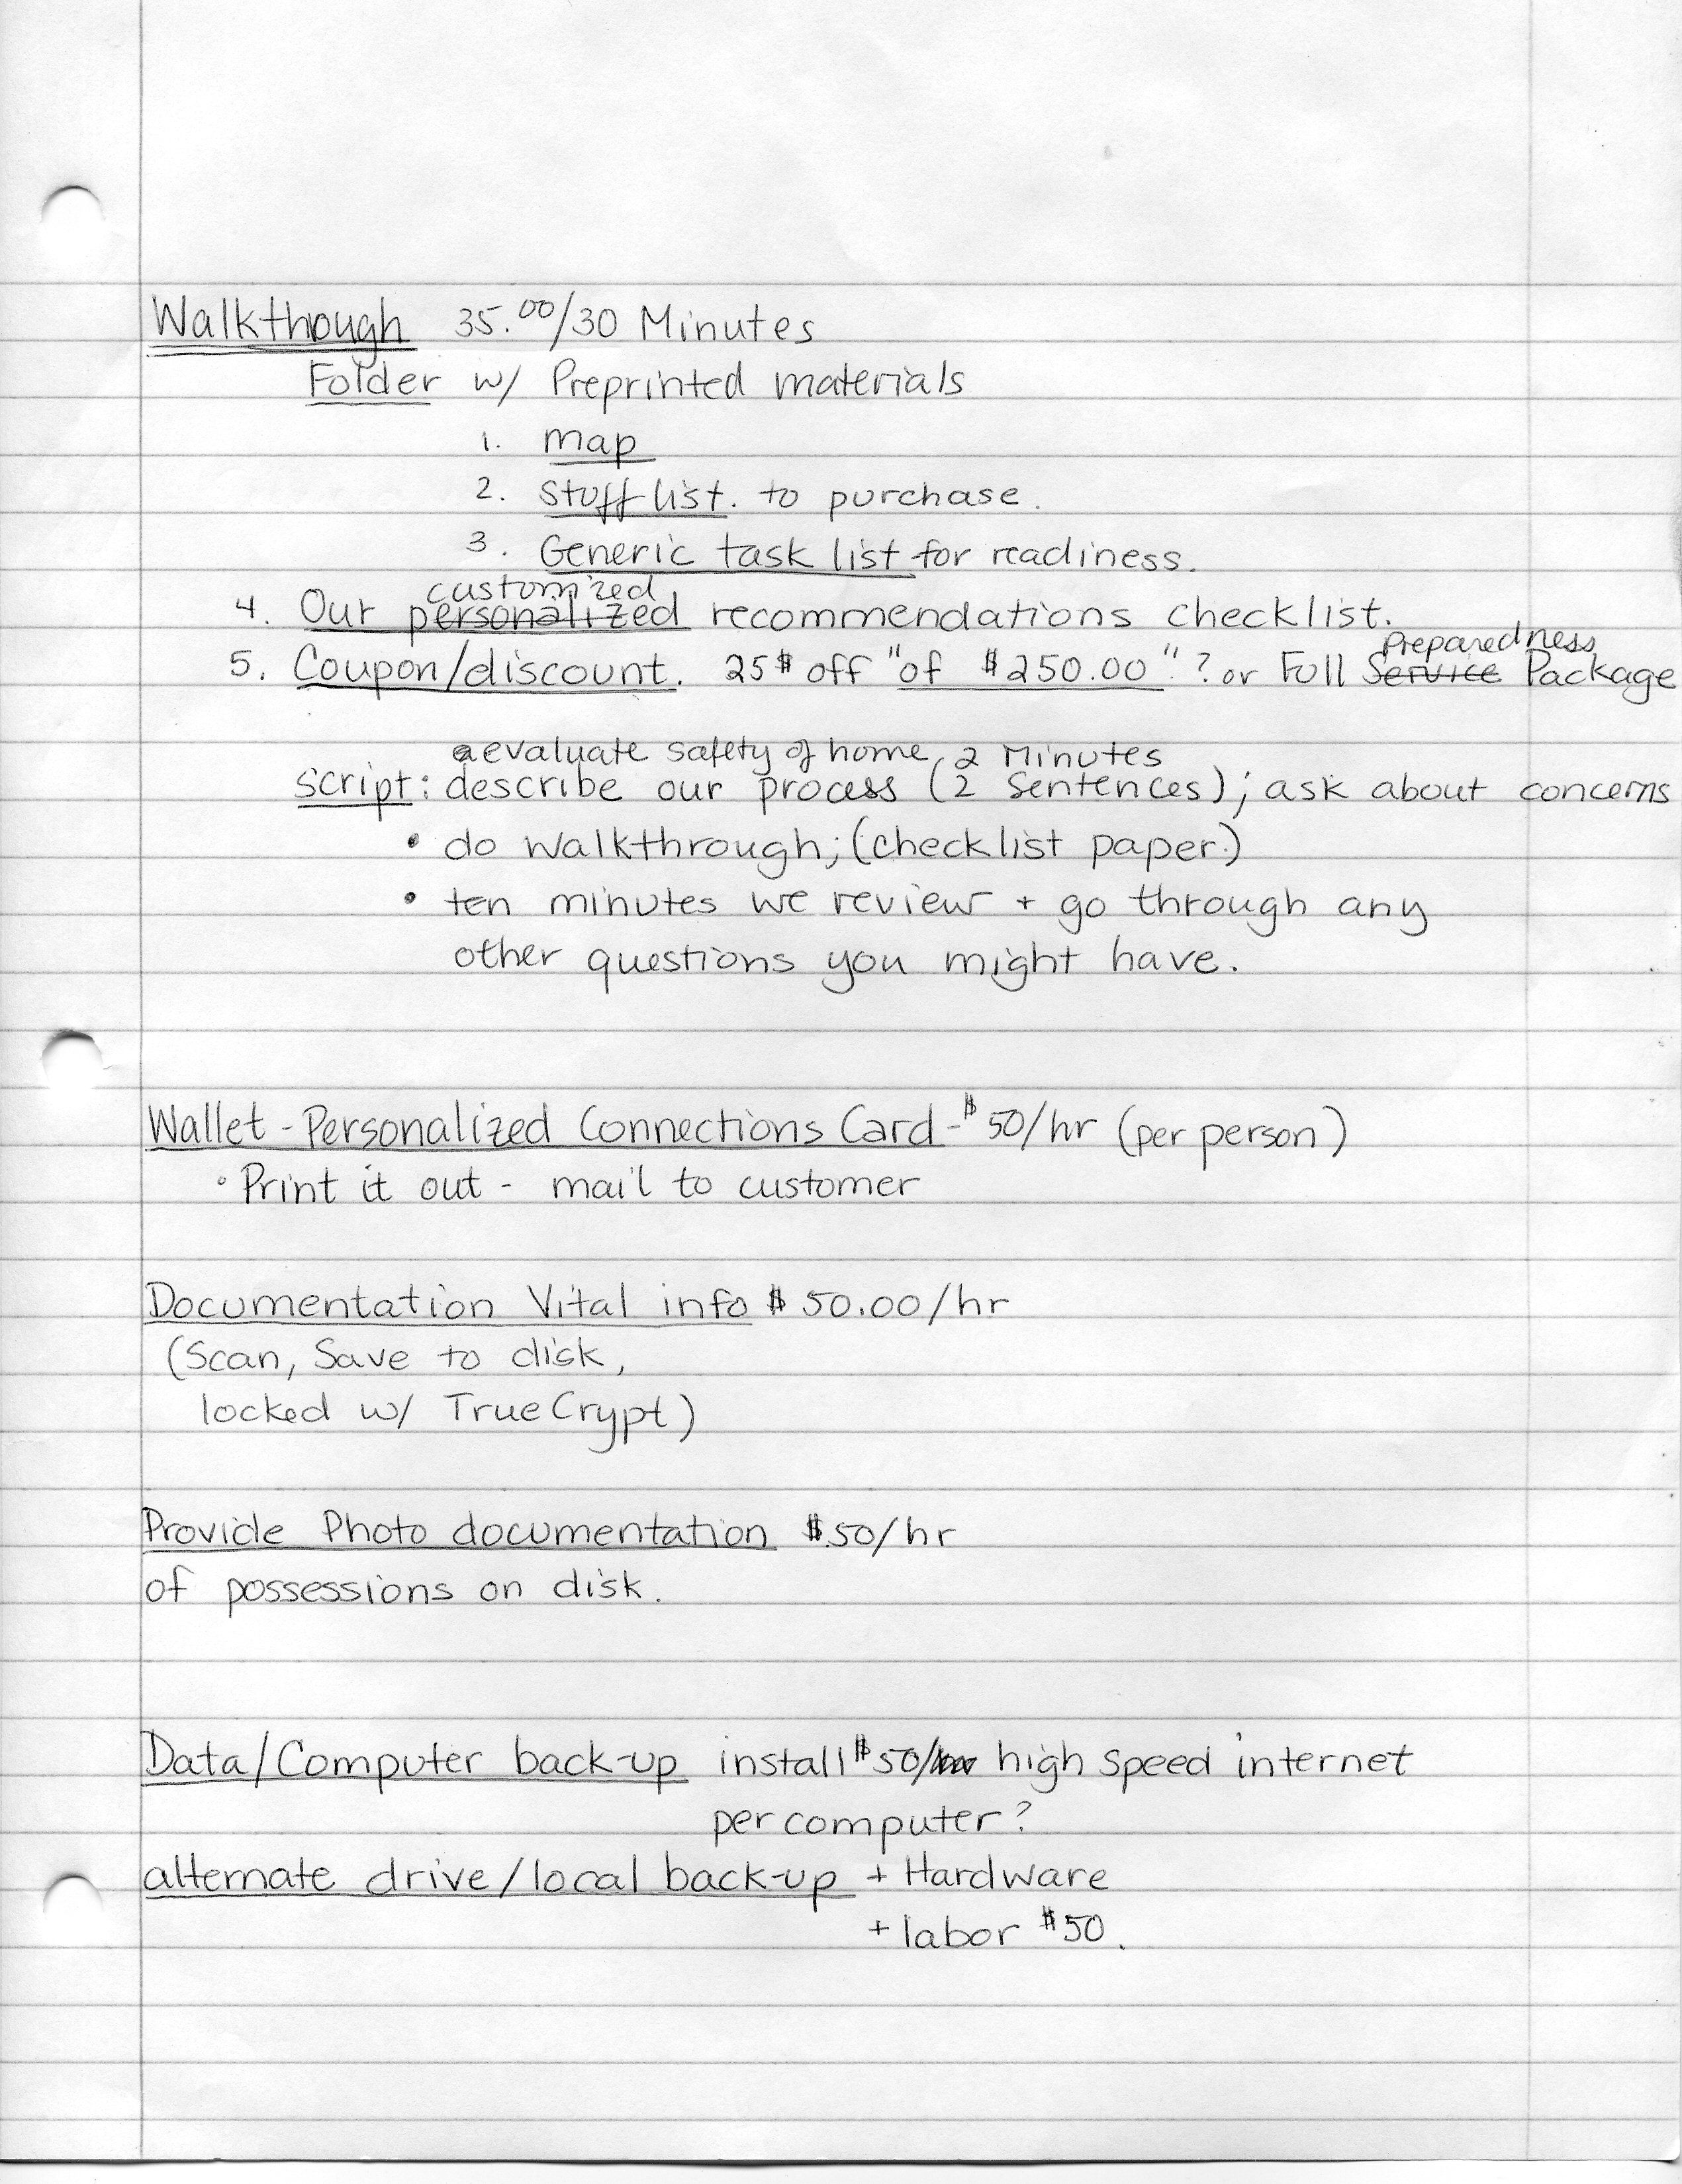 Walkthough 35.00/30 Minutes
Folder w/ Preprinted materials
1. map
2. Stuff list. to purchase.
3. Generic task list for readiness.
customized
4. Our personalized recommendations checklist.
Preparedness
5. Coupon/discount. 25$ off "of $250.00"? or Full Service Package
evaluate safety of home, 2 Minutes
Script: describe our process (2 Sentences); ask about concerns
• do walkthrough; (checklist paper.)
• ten minutes we review + go through any
other questions you might have.
Wallet - Personalized Connections Card - $50/hr (per person)
• Print it out - mail to customer
Documentation Vital info $50.00/hr
(Scan, Save to disk,
locked w/ TrueCrypt)
Provide Photo documentation $50/hr
of possessions on disk.
Data/Computer back-up install $50/ high speed internet
per computer?
alternate drive/local back-up + Hardware
+ labor $50.